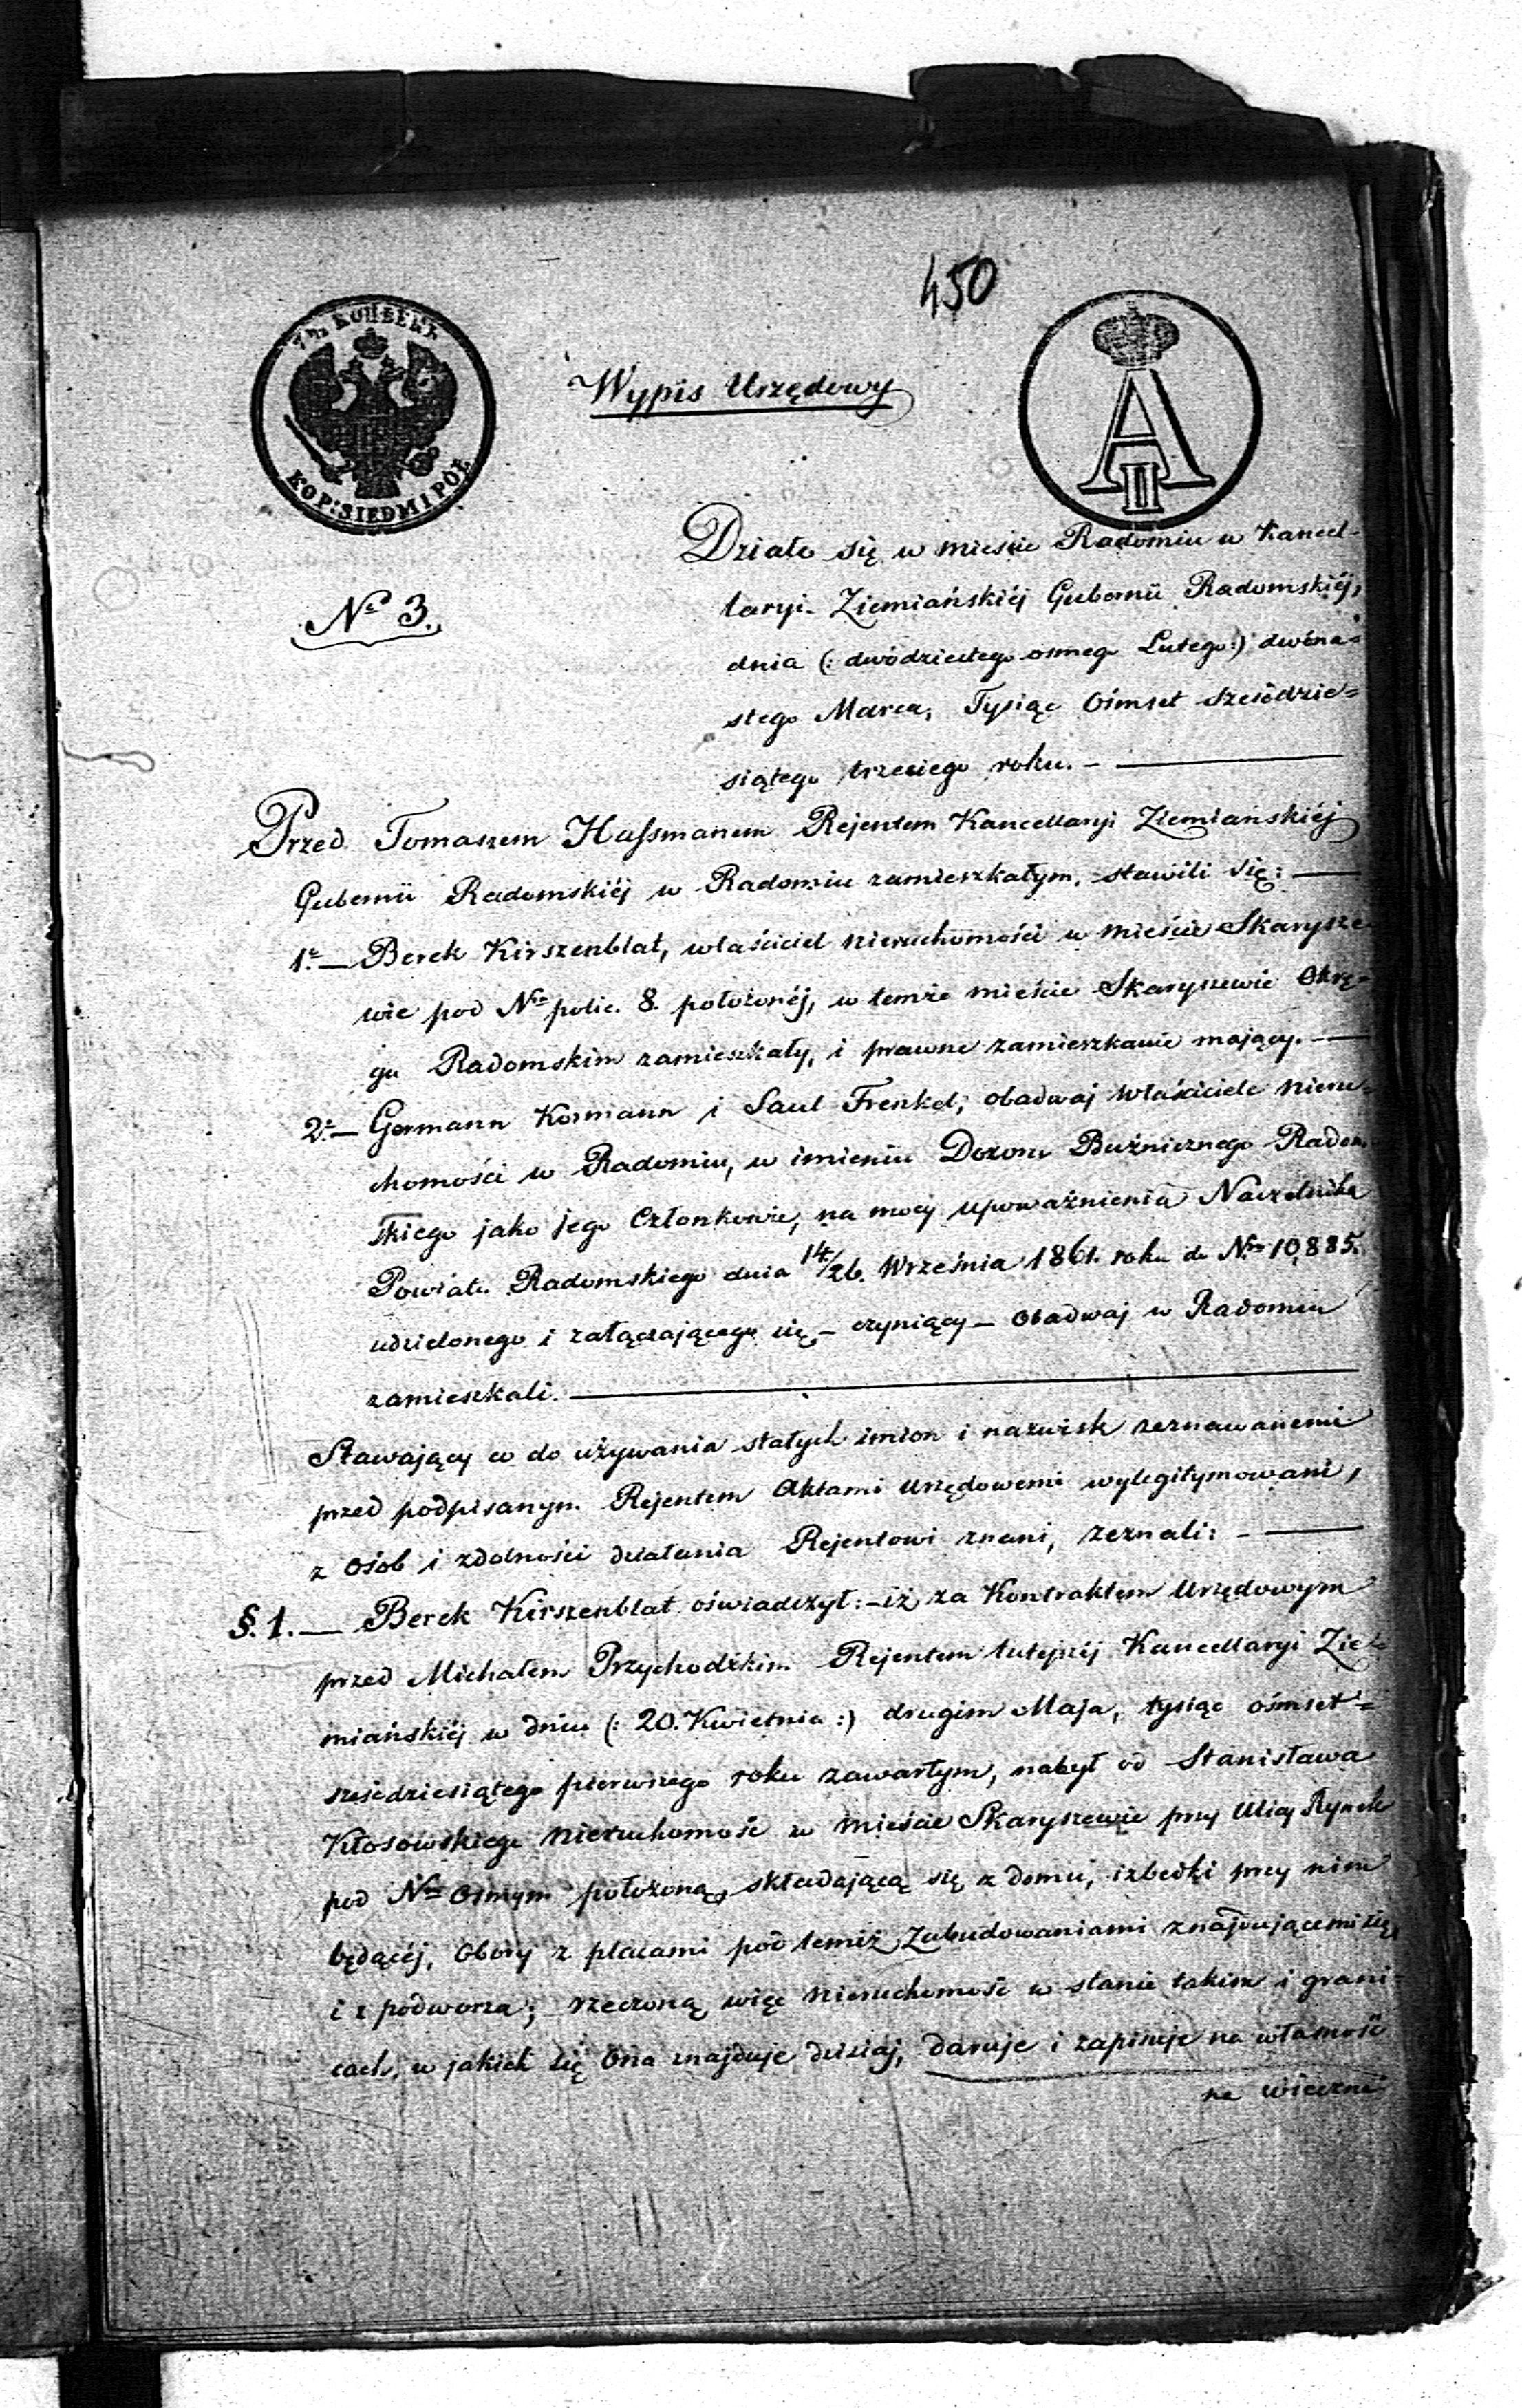 450
7½ КОПѢЕКЪ
KOP: SIEDM I PÓŁ
Wypis Urzędowy
A II
Działo się w mieście Radomiu w Kancel-
laryi Ziemiańskiéj Gubernii Radomskiéj,
№ 3.
dnia (: dwódziestego osmego Lutego :) dwóna=
stego Marca, Tysiąc Ośmset sześćdzie=
siątego trzeciego roku. —
Przed Tomaszem Hassmanem Rejentem Kancellaryi Ziemiańskiéj
Gubernii Radomskiéj w Radomiu zamieszkałym, stawili się: —
1.e — Berek Kirszenblat, właściciel nieruchomości w mieście Skarysze-
wie pod Nrm polic. 8. położonéj, w temże mieście Skaryszewie Okrę-
gu Radomskim zamieszkały, i prawne zamieszkanie mający. —
2.e — Germann Kormann i Saul Frenkel, obadwaj właściciele nieru-
chomości w Radomiu, w imieniu Dozoru Bużnicznego Radom-
skiego jako jego Członkowie, na mocy upoważnienia Naczelnika
Powiatu Radomskiego dnia 14/26. Września 1861. roku do Nru 10,885.
udzielonego i załączającego się — czyniący — Obadwaj w Radomiu
zamieszkali. —
Stawający co do używania stałych imion i nazwisk zeznawanemi
przed podpisanym Rejentem Aktami Urzędowemi wylegitymowani,
z Osób i zdolności działania Rejentowi znani, zeznali: —
§. 1. — Berek Kirszenblat oświadczył: — iż za Kontraktem Urzędowym
przed Michałem Przychodzkim Rejentem tutejszéj Kancellaryi Zie-
miańskiéj w dniu (: 20. Kwietnia :) drugim Maja, tysiąc ośmset=
sześćdziesiątego pierwszego roku zawartym, nabył od Stanisława
Kłosowskiego nieruchomość w mieście Skaryszewie przy Ulicy Rynek
pod Nrm Osmym położoną, składającą się z domu, izbedki przy nim
będącéj, Obory z placami pod temiż Zabudowaniami znajdującemi się,
i z podworza; rzeczoną więc nieruchomość w stanie takim i grani-
cach, w jakich się Ona znajduje dzisiaj, daruje i zapisuje na własność
na wieczne